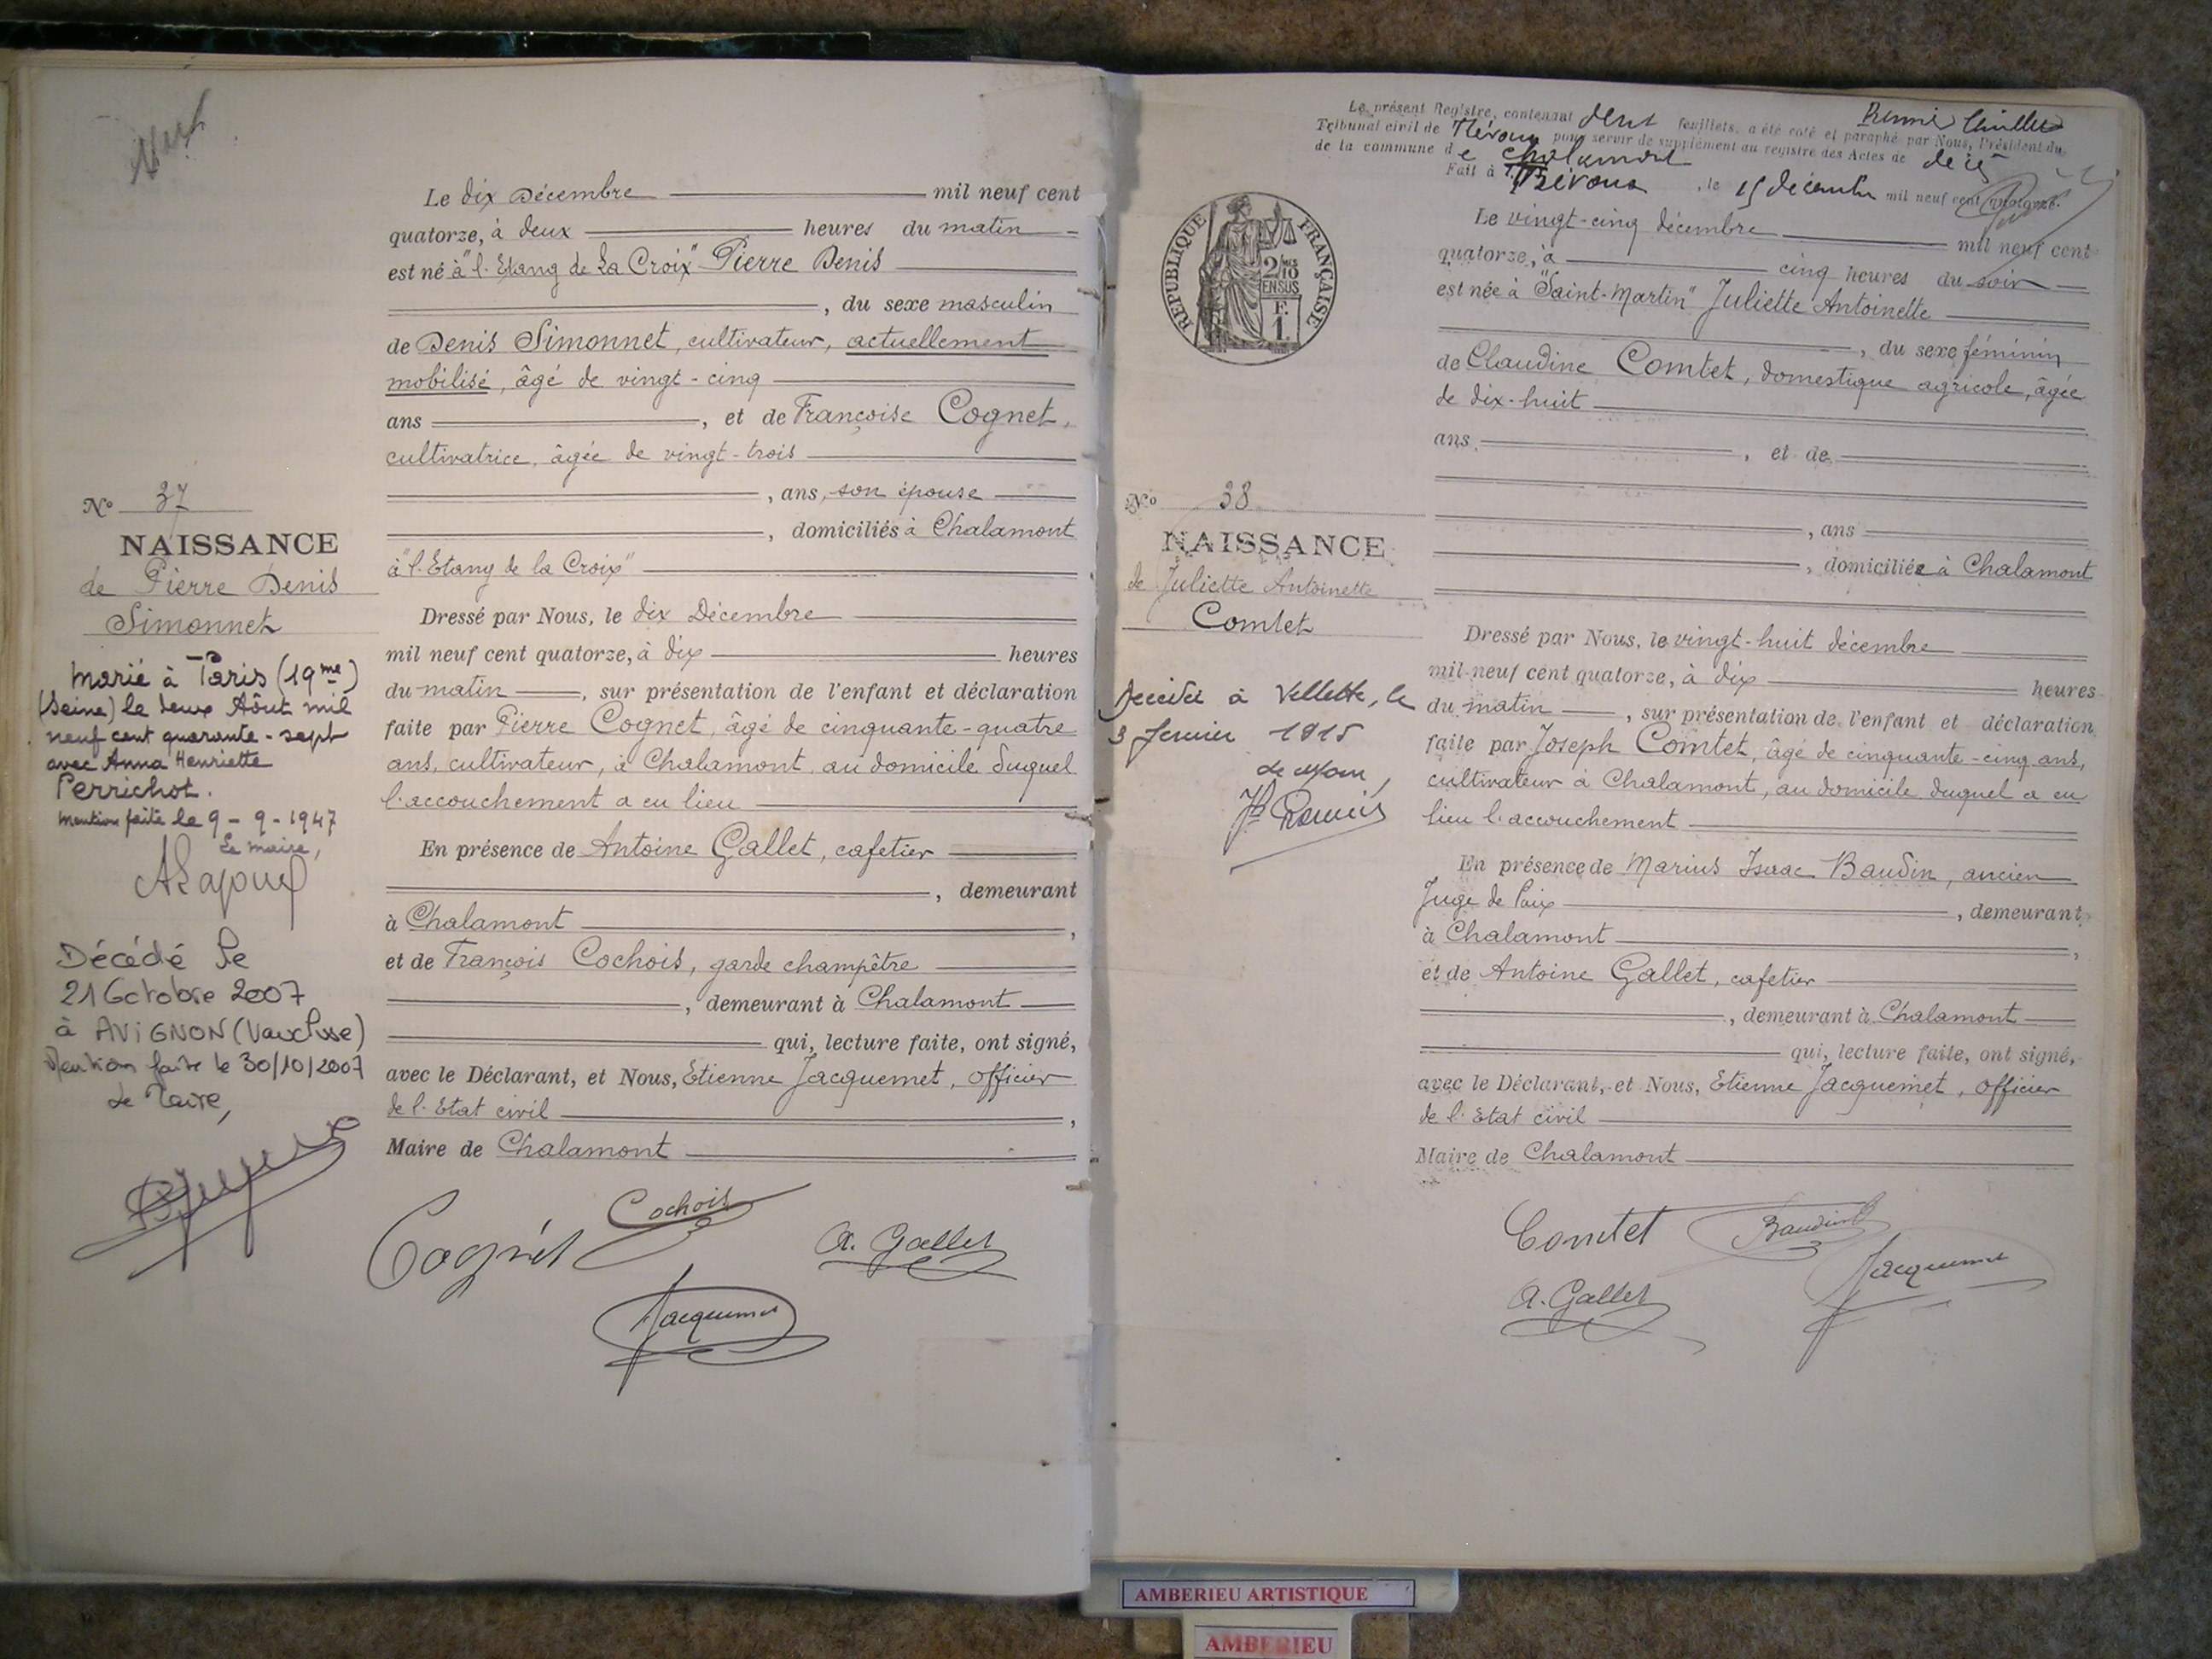 Le dix Décembre mil neuf cent
quatorze, à deux heures du matin
est né à "l'Etang de La Croix" Pierre Denis
, du sexe masculin
de Denis Simonnet, cultivateur, actuellement
mobilisé, âgé de vingt-cinq
ans , et de Françoise Cognet,
cultivatrice, âgée de vingt-trois
, ans, son épouse
, domiciliés à Chalamont
à "l'Etang de la Croix"
Dressé par Nous, le dix Décembre
mil neuf cent quatorze, à dix heures
du matin , sur présentation de l'enfant et déclaration
faite par Pierre Cognet, âgé de cinquante-quatre
ans, cultivateur, à Chalamont, au domicile duquel
l'accouchement a eu lieu
En présence de Antoine Gallet, cafetier
, demeurant
à Chalamont ,
et de François Cochois, garde champêtre
, demeurant à Chalamont
qui, lecture faite, ont signé,
avec le Déclarant, et Nous, Etienne Jacquemet, officier
de l'Etat civil ,
Maire de Chalamont
Cognet
Cochois
A. Gallet
Jacquemet
No 37
NAISSANCE
de Pierre Denis
Simonnet
Marié à Paris (19me)
(Seine) le deux Aôut mil
neuf cent quarante-sept
avec Anna Henriette
Perrichot.
Mention faite le 9-9-1947
Le maire,
Décédé le
21 Octobre 2007
à AVIGNON (Vaucluse)
Mention faite le 30/10/2007
Le Maire,
Le présent Registre, contenant deux feuillets, a été coté et paraphé par Nous, Président du
Tribunal civil de Trévoux pour servir de supplément au registre des Actes de
de la commune de Chalamont
Fait à Trévoux, le 15 décembre mil neuf cent quatorze.
Premier feuillet
REPUBLIQUE FRANÇAISE
2/10 EN SUS
F. 1.
Le vingt-cinq décembre mil neuf cent
quatorze, à cinq heures du soir
est née à "Saint-Martin" Juliette Antoinette
, du sexe féminin
de Claudine Comtet, domestique agricole, âgée
de dix-huit
ans , et de
, ans
, domiciliée à Chalamont
Dressé par Nous, le vingt-huit décembre
mil neuf cent quatorze, à dix heures
du matin , sur présentation de l'enfant et déclaration
faite par Joseph Comtet, âgé de cinquante-cinq ans,
cultivateur à Chalamont, au domicile duquel a eu
lieu l'accouchement
En présence de Marius Isaac Baudin, ancien
Juge de Paix , demeurant
à Chalamont ,
et de Antoine Gallet, cafetier
, demeurant à Chalamont
qui, lecture faite, ont signé,
avec le Déclarant, et Nous, Etienne Jacquemet, officier
de l'Etat civil
Maire de Chalamont
Comtet
Baudin
A. Gallet
Jacquemet
No 38
NAISSANCE
de Juliette Antoinette
Comtet
Décédée à Villette, le
3 février 1915
Le Maire,
AMBERIEU ARTISTIQUE
AMBERIEU